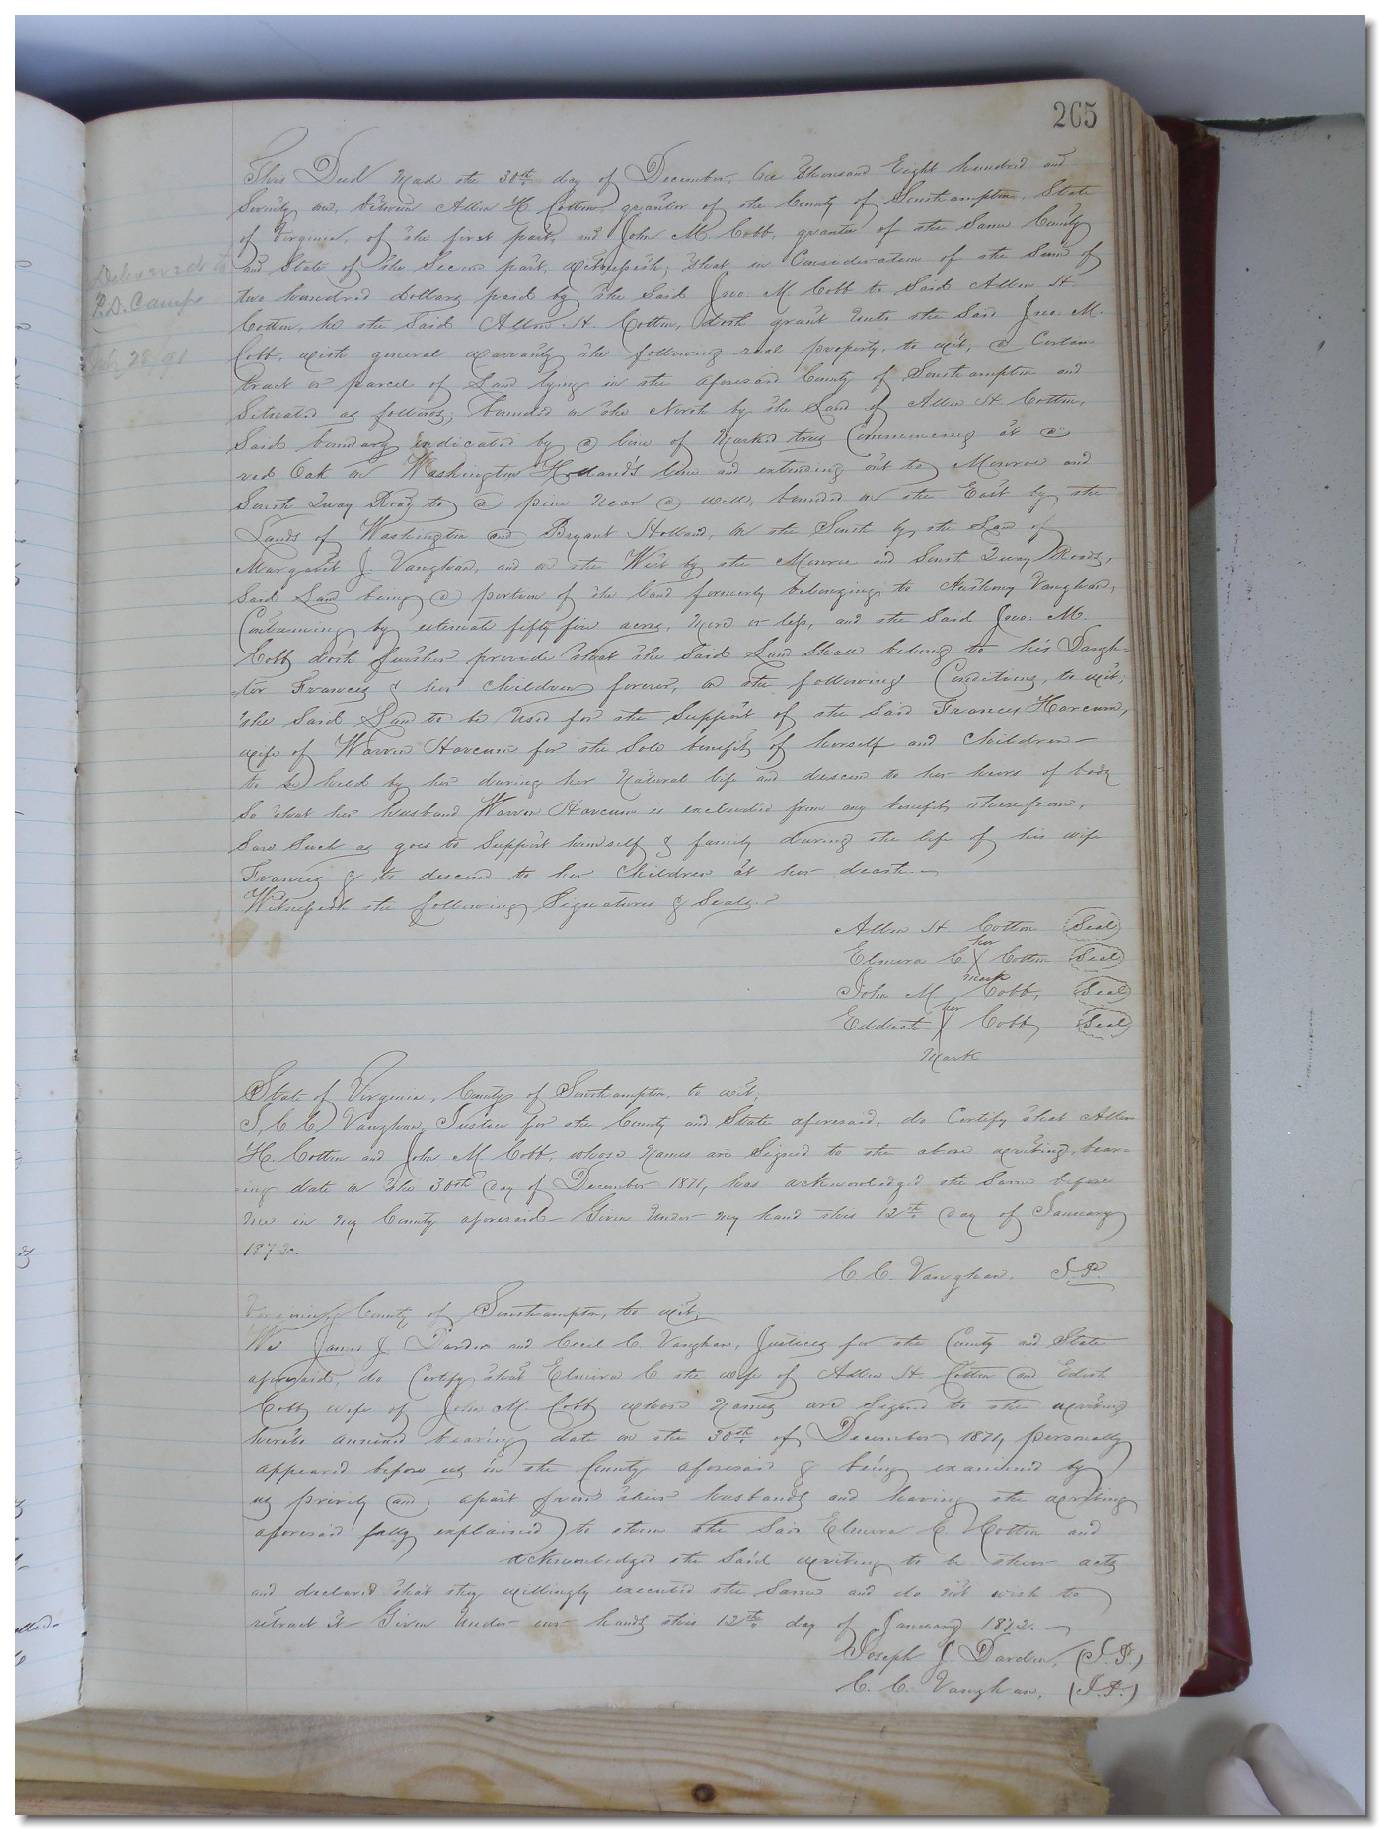 265
This Deed made the 30th day of December, One Thousand Eight hundred and
Seventy one, between Allen H Cotton, grantor of the County of Southampton, State
of Virginia, of the first part, and John M Cobb, grantee of the Same County
and State of the Second part, Witnesseth; that in Consideration of the Sum of
two hundred dollars paid by the Said Jno. M. Cobb to Said Allen H.
Cotton, he the Said Allen H. Cotton, doth grant unto the Said Jno. M.
Cobb, with general warranty the following real property, to wit; a Certain
tract or parcel of Land lying in the aforesaid County of Southampton and
Situated as follows; bounded on the North by the Land of Allen H Cotton,
Said boundary indicated by a line of Marked trees Commencing at a
red Oak on Washington Holland's line and extending out to Monroe and
South Quay Road to a pine near a well, bounded on the East by the
Lands of Washington and Bryant Holland, on the South by the Land of
Margaret J. Vaughan, and on the West by the Monroe and South Quay Roads,
Said Land being a portion of the land formerly belonging to Anthony Vaughan,
Containing by estimate fifty five acres, more or less, and the Said Jno. M.
Cobb doth further provide that the Said Land Shall belong to his Daugh=
=ter Frances & her children forever, on the following Conditions, to wit;
the Said Land to be Used for the Support of the Said Frances Harcum,
wife of Warren Harcum for the Sole benefit of herself and Children–
to be held by her during her Natural life and descend to her heirs of body
So that her husband Warren Harcum is excluded from any benefit therefrom,
Save Such as goes to Support himself & family during the life of his wife
Frances & to descend to her Children at her death.—
Witnesseth the following Signatures & Seals.
Delivered to
P.D. Camp
July 28/91
Allen H Cotton (Seal)
her
Elmira C X Cotton (Seal)
mark
John M Cobb, (Seal)
her
Eddieth X Cobb (Seal)
Mark
State of Virginia, County of Southampton, to wit;
I, C C Vaughan, Justice for the County and State aforesaid, do Certify that Allen
H. Cotton and John M Cobb, whose Names are Signed to the above writing, bear=
=ing date on the 30th day of December 1871, has acknowledged the Same before
me in my County aforesaid– Given Under my hand this 12th day of January
1872.
C C. Vaughan, J.P.
Virginia, County of Southampton, to wit;
We James J Darden and Cecil C. Vaughan, Justices for the County and State
aforesaid, do Certify that Elmira C the wife of Allen H Cotton and Edieth
Cobb wife of John M. Cobb whose Names are Signed to the writing
hereto annexed bearing date on the 30th of December 1871, personally
appeared before us in the County aforesaid & being examined by
us privily and apart from their husbands and having the writing
aforesaid fully explained to them the Said Elmira C. Cotton and
acknowledged the Said writing to be their acts
and declared that they willingly executed the Same and do not wish to
retract it– Given Under our hands this 12th day of January 1872.—
Joseph J. Darden, (J.P.)
C. C. Vaughan, (J.P.)